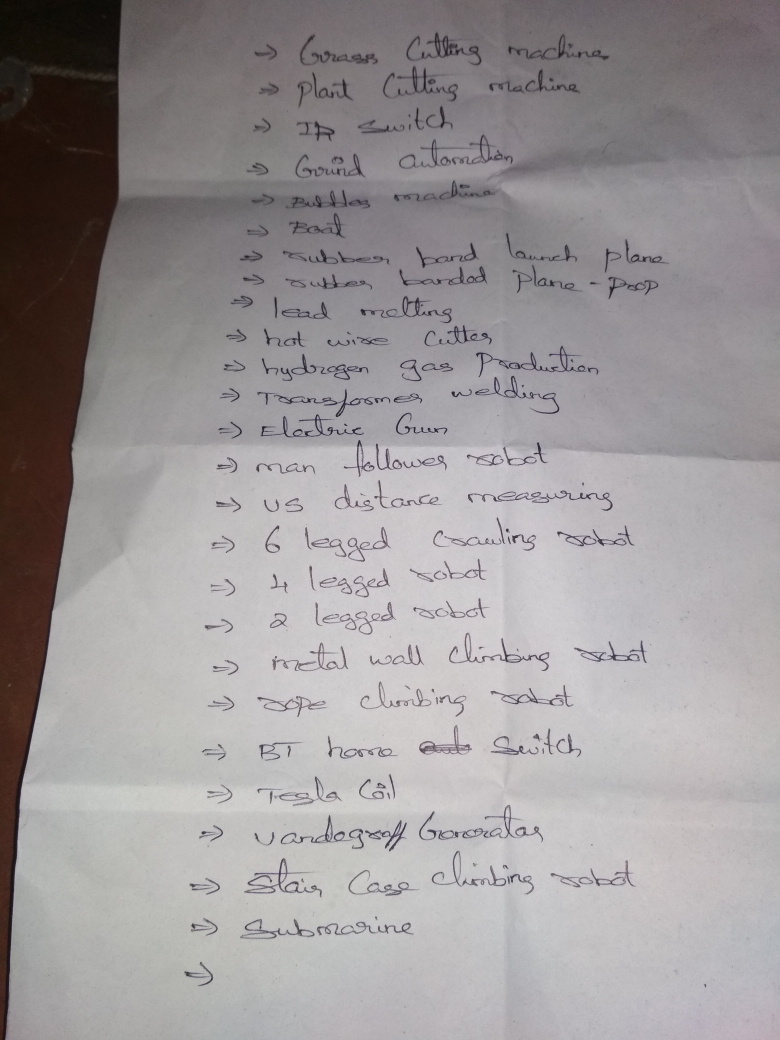 ⇒ Grass Cutting machine
⇒ Plant Cutting machine
⇒ IR switch
⇒ Grind automation
⇒ Bubbles machine
⇒ Boat
⇒ rubber band launch plane
⇒ rubber banded plane - prop
⇒ lead melting
⇒ hot wire cutter
⇒ hydrogen gas Production
⇒ Transformer welding
⇒ Electric Gun
⇒ man follower robot
⇒ US distance measuring
⇒ 6 legged crawling robot
⇒ 4 legged robot
⇒ 2 legged robot
⇒ metal wall climbing robot
⇒ rope climbing robot
⇒ BT home Switch
⇒ Tesla Coil
⇒ vandograff Generator
⇒ Stair Case climbing robot
⇒ Submarine
⇒